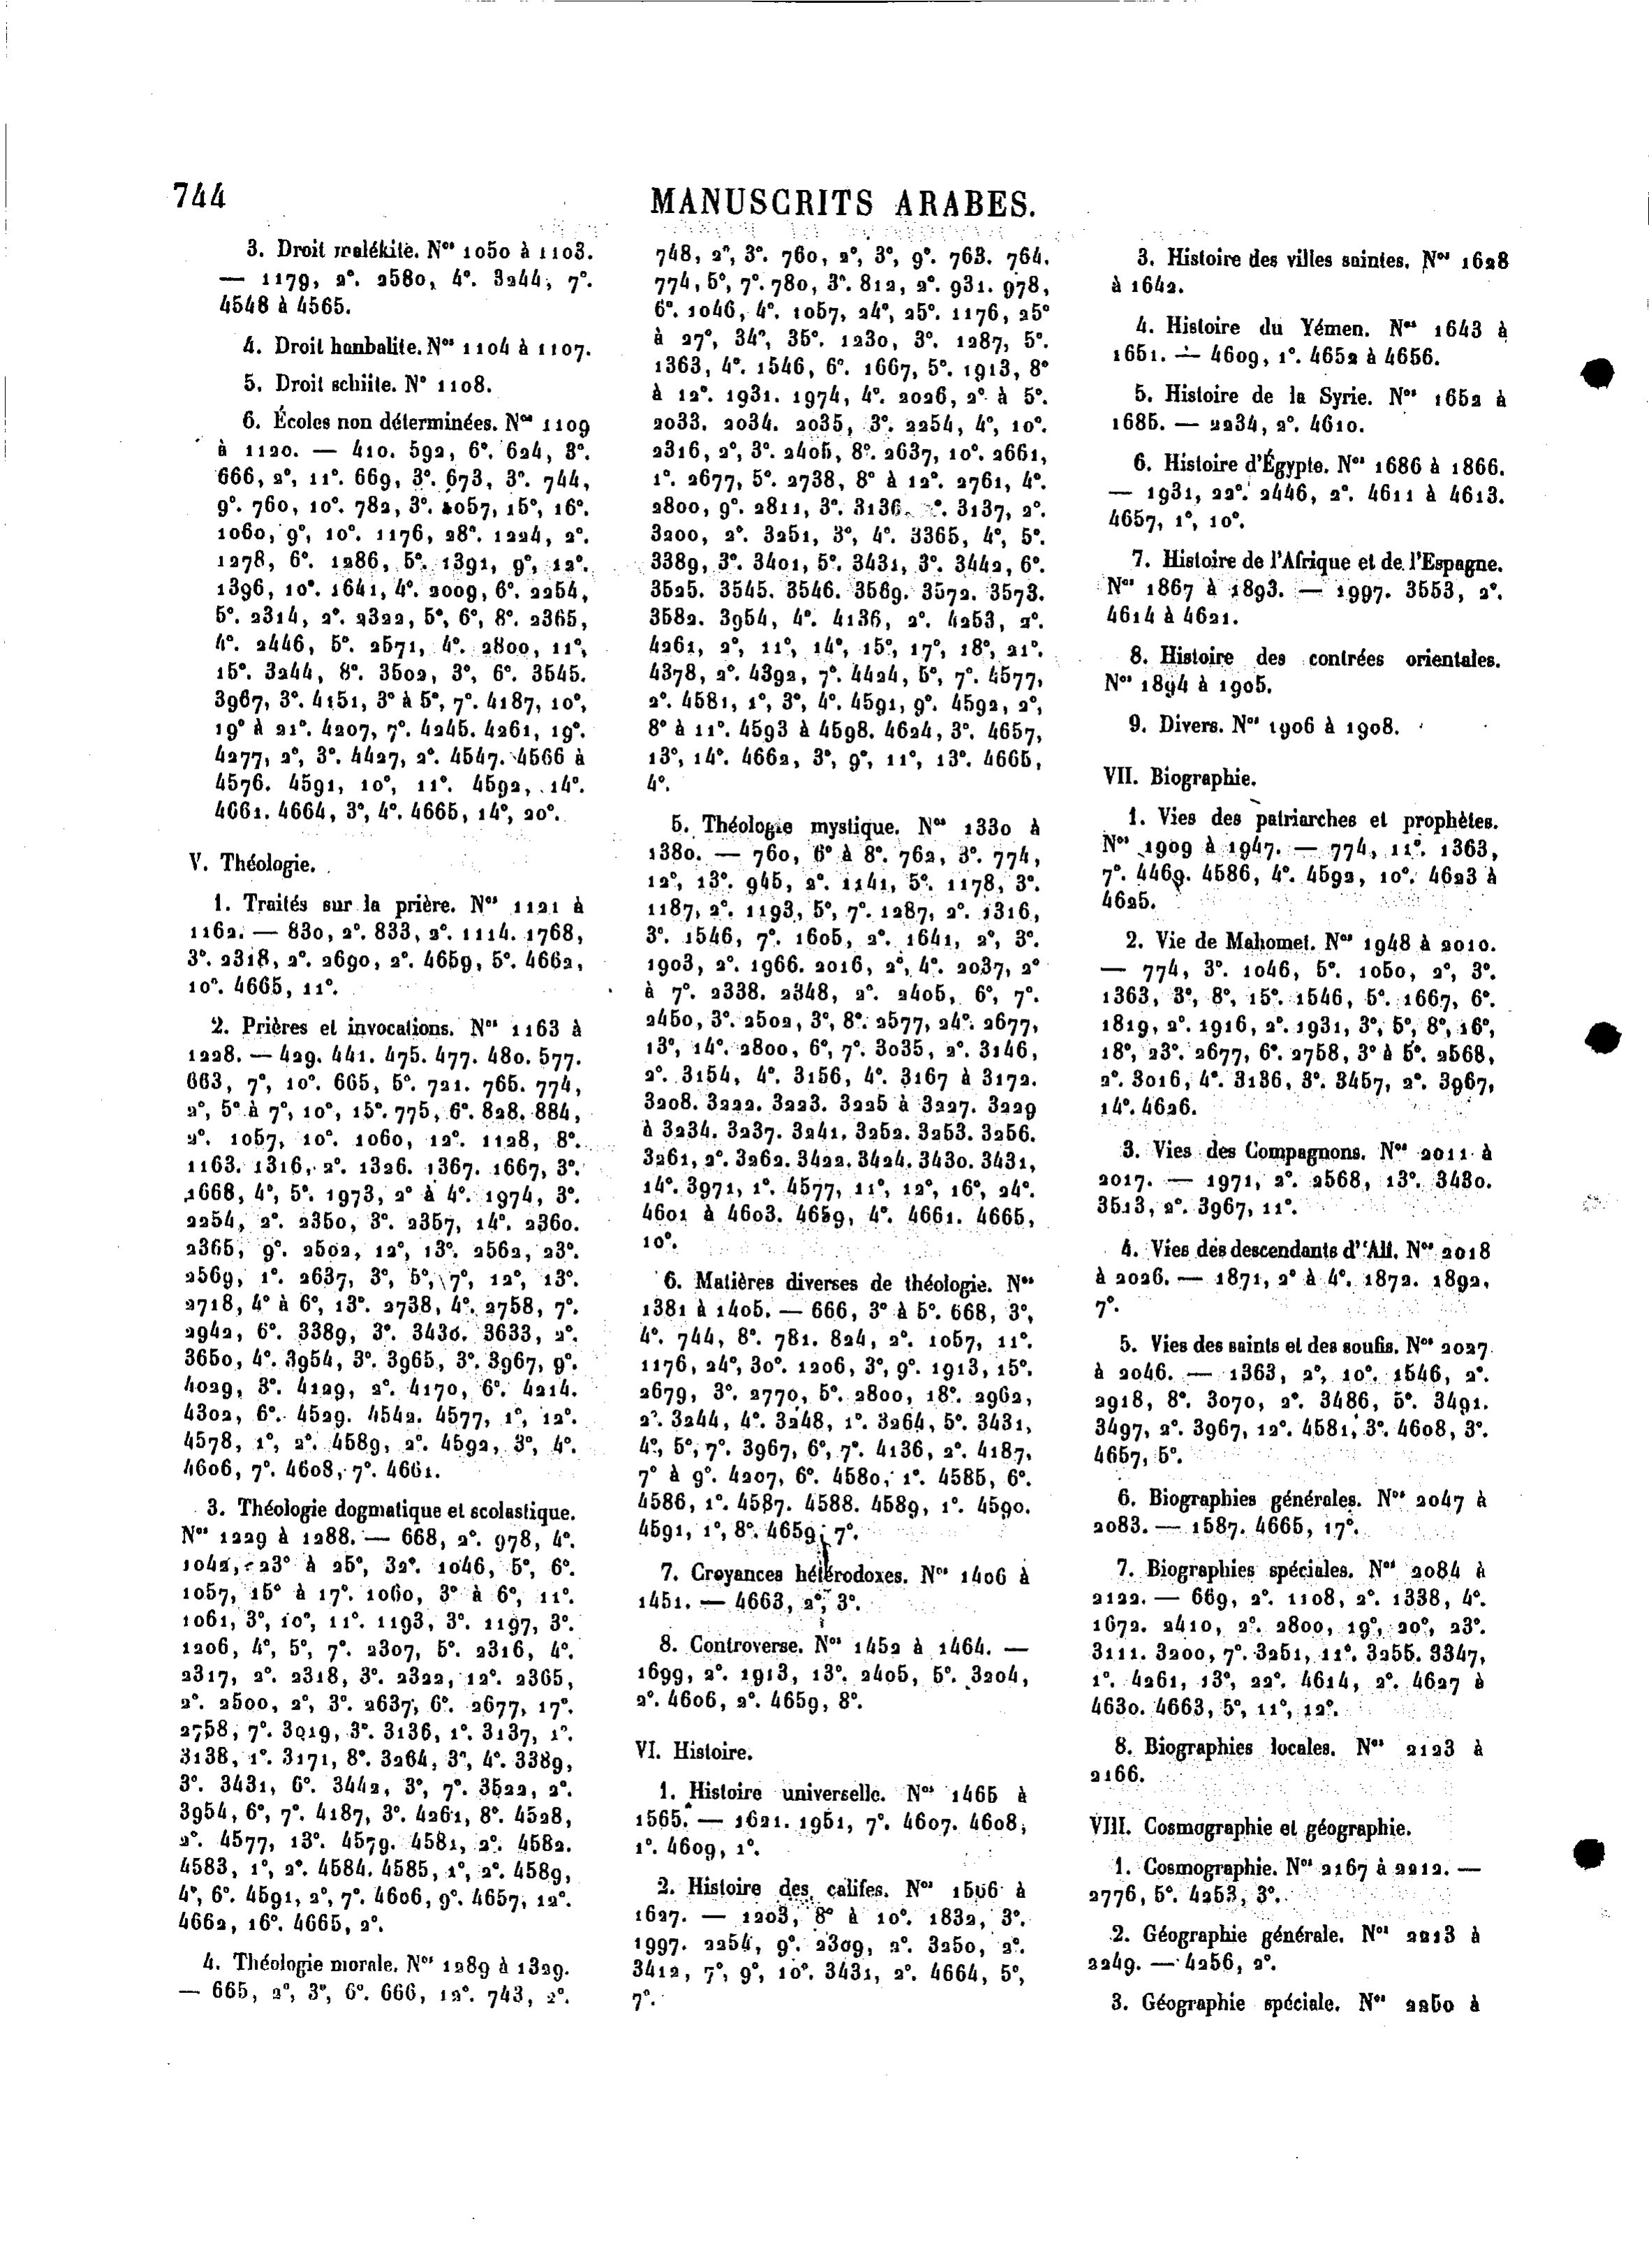 744
MANUSCRITS ARABES.
3. Droit malékite. Nos 1050 à 1103.
— 1179, 2°. 2580, 4°. 3244, 7°.
4548 à 4565.
4. Droit hanbalite. Nos 1104 à 1107.
5. Droit schiite. N° 1108.
6. Écoles non déterminées. Nos 1109
à 1120. — 410. 592, 6°. 624, 3°.
666, 2°, 11°. 669, 3°. 673, 3°. 744,
9°. 760, 10°. 782, 3°. 1057, 15°, 16°.
1060, 9°, 10°. 1176, 28°. 1224, 2°.
1278, 6°. 1286, 5°. 1391, 9°, 12°.
1396, 10°. 1641, 4°. 2009, 6°. 2254,
5°. 2314, 2°. 2322, 5°, 6°, 8°. 2365,
4°. 2446, 5°. 2571, 4°. 2800, 11°,
15°. 3244, 8°. 3502, 3°, 6°. 3545.
3967, 3°. 4151, 3° à 5°, 7°. 4187, 10°,
19° à 21°. 4207, 7°. 4245. 4261, 19°.
4277, 2°, 3°. 4427, 2°. 4547. 4566 à
4576. 4591, 10°, 11°. 4592, 14°.
4661. 4664, 3°, 4°. 4665, 14°, 20°.
V. Théologie.
1. Traités sur la prière. Nos 1121 à
1162. — 830, 2°. 833, 2°. 1114. 1768,
3°. 2318, 2°. 2690, 2°. 4659, 5°. 4662,
10°. 4665, 11°.
2. Prières et invocations. Nos 1163 à
1228. — 429. 441. 475. 477. 480. 577.
663, 7°, 10°. 665, 5°. 721. 765. 774,
2°, 5° à 7°, 10°, 15°. 775, 6°. 828. 884,
2°. 1057, 10°. 1060, 12°. 1128, 8°.
1163. 1316, 2°. 1326. 1367. 1667, 3°.
1668, 4°, 5°. 1973, 2° à 4°. 1974, 3°.
2254, 2°. 2350, 3°. 2357, 14°. 2360.
2365, 9°. 2502, 12°, 13°. 2562, 23°.
2569, 1°. 2637, 3°, 5°, 7°, 12°, 13°.
2718, 4° à 6°, 13°. 2738, 4°. 2758, 7°.
2942, 6°. 3389, 3°. 3430. 3633, 2°.
3650, 4°. 3954, 3°. 3965, 3°. 3967, 9°.
4029, 3°. 4129, 2°. 4170, 6°. 4214.
4302, 6°. 4529. 4542. 4577, 1°, 12°.
4578, 1°, 2°. 4589, 2°. 4592, 3°, 4°.
4606, 7°. 4608, 7°. 4661.
3. Théologie dogmatique et scolastique.
Nos 1229 à 1288. — 668, 2°. 978, 4°.
1042, 23° à 25°, 32°. 1046, 5°, 6°.
1057, 15° à 17°. 1060, 3° à 6°, 11°.
1061, 3°, 10°, 11°. 1193, 3°. 1197, 3°.
1206, 4°, 5°, 7°. 2307, 5°. 2316, 4°.
2317, 2°. 2318, 3°. 2322, 12°. 2365,
2°. 2500, 2°, 3°. 2637, 6°. 2677, 17°.
2758, 7°. 3019, 3°. 3136, 1°. 3137, 1°.
3138, 1°. 3171, 8°. 3264, 3°, 4°. 3389,
3°. 3431, 6°. 3442, 3°, 7°. 3522, 2°.
3954, 6°, 7°. 4187, 3°. 4261, 8°. 4528,
2°. 4577, 13°. 4579. 4581, 2°. 4582.
4583, 1°, 2°. 4584. 4585, 1°, 2°. 4589,
4°, 6°. 4591, 2°, 7°. 4606, 9°. 4657, 12°.
4662, 16°. 4665, 2°.
4. Théologie morale. Nos 1289 à 1329.
— 665, 2°, 3°, 6°. 666, 12°. 743, 2°.
748, 2°, 3°. 760, 2°, 3°, 9°. 763. 764.
774, 5°, 7°. 780, 3°. 812, 2°. 931. 978,
6°. 1046, 4°. 1057, 24°, 25°. 1176, 25°
à 27°, 34°, 35°. 1230, 3°. 1287, 5°.
1363, 4°. 1546, 6°. 1667, 5°. 1913, 8°
à 12°. 1931. 1974, 4°. 2026, 2° à 5°.
2033. 2034. 2035, 3°. 2254, 4°, 10°.
2316, 2°, 3°. 2405, 8°. 2637, 10°. 2661,
1°. 2677, 5°. 2738, 8° à 12°. 2761, 4°.
2800, 9°. 2811, 3°. 3136, 2°. 3137, 2°.
3200, 2°. 3251, 3°, 4°. 3365, 4°, 5°.
3389, 3°. 3401, 5°. 3431, 3°. 3442, 6°.
3525. 3545. 3546. 3569. 3572. 3573.
3582. 3954, 4°. 4136, 2°. 4253, 2°.
4261, 2°, 11°, 14°, 15°, 17°, 18°, 21°.
4378, 2°. 4392, 7°. 4424, 5°, 7°. 4577,
2°. 4581, 1°, 3°, 4°. 4591, 9°. 4592, 2°,
8° à 11°. 4593 à 4598. 4624, 3°. 4657,
13°, 14°. 4662, 3°, 9°, 11°, 13°. 4665,
4°.
5. Théologie mystique. Nos 1330 à
1380. — 760, 6° à 8°. 762, 3°. 774,
12°, 13°. 945, 2°. 1141, 5°. 1178, 3°.
1187, 2°. 1193, 5°, 7°. 1287, 2°. 1316,
3°. 1546, 7°. 1605, 2°. 1641, 2°, 3°.
1903, 2°. 1966. 2016, 2°, 4°. 2037, 2°
à 7°. 2338. 2348, 2°. 2405, 6°, 7°.
2450, 3°. 2502, 3°, 8°. 2577, 24°. 2677,
13°, 14°. 2800, 6°, 7°. 3035, 2°. 3146,
2°. 3154, 4°. 3156, 4°. 3167 à 3172.
3208. 3222. 3223. 3225 à 3227. 3229
à 3234. 3237. 3241. 3252. 3253. 3256.
3261, 2°. 3262. 3422. 3424. 3430. 3431,
14°. 3971, 1°. 4577, 11°, 12°, 16°, 24°.
4601 à 4603. 4659, 4°. 4661. 4665,
10°.
6. Matières diverses de théologie. Nos
1381 à 1405. — 666, 3° à 5°. 668, 3°,
4°. 744, 8°. 781. 824, 2°. 1057, 11°.
1176, 24°, 30°. 1206, 3°, 9°. 1913, 15°.
2679, 3°. 2770, 5°. 2800, 18°. 2962,
2°. 3244, 4°. 3248, 1°. 3264, 5°. 3431,
4°, 5°, 7°. 3967, 6°, 7°. 4136, 2°. 4187,
7° à 9°. 4207, 6°. 4580, 1°. 4585, 6°.
4586, 1°. 4587. 4588. 4589, 1°. 4590.
4591, 1°, 8°. 4659, 7°.
7. Croyances hétérodoxes. Nos 1406 à
1451. — 4663, 2°, 3°.
8. Controverse. Nos 1452 à 1464. —
1699, 2°. 1913, 13°. 2405, 5°. 3204,
2°. 4606, 2°. 4659, 8°.
VI. Histoire.
1. Histoire universelle. Nos 1465 à
1565. — 1621. 1951, 7°. 4607. 4608,
1°. 4609, 1°.
2. Histoire des califes. Nos 1566 à
1627. — 1203, 8° à 10°. 1832, 3°.
1997. 2254, 9°. 2309, 2°. 3250, 2°.
3412, 7°, 9°, 10°. 3431, 2°. 4664, 5°,
7°.
3. Histoire des villes saintes. Nos 1628
à 1642.
4. Histoire du Yémen. Nos 1643 à
1651. — 4609, 1°. 4652 à 4656.
5. Histoire de la Syrie. Nos 1652 à
1685. — 2234, 2°. 4610.
6. Histoire d'Égypte. Nos 1686 à 1866.
— 1931, 22°. 2446, 2°. 4611 à 4613.
4657, 1°, 10°.
7. Histoire de l'Afrique et de l'Espagne.
Nos 1867 à 1893. — 1997. 3553, 2°.
4614 à 4621.
8. Histoire des contrées orientales.
Nos 1894 à 1905.
9. Divers. Nos 1906 à 1908.
VII. Biographie.
1. Vies des patriarches et prophètes.
Nos 1909 à 1947. — 774, 11°. 1363,
7°. 4469. 4586, 4°. 4592, 10°. 4623 à
4625.
2. Vie de Mahomet. Nos 1948 à 2010.
— 774, 3°. 1046, 5°. 1050, 2°, 3°.
1363, 3°, 8°, 15°. 1546, 5°. 1667, 6°.
1819, 2°. 1916, 2°. 1931, 3°, 5°, 8°, 16°,
18°, 23°. 2677, 6°. 2758, 3° à 5°. 2568,
2°. 3016, 4°. 3136, 3°. 3457, 2°. 3967,
14°. 4626.
3. Vies des Compagnons. Nos 2011 à
2017. — 1971, 2°. 2568, 13°. 3430.
3513, 2°. 3967, 11°.
4. Vies des descendants d'ʿAli. Nos 2018
à 2026. — 1871, 2° à 4°. 1872. 1892,
7°.
5. Vies des saints et des soufis. Nos 2027
à 2046. — 1363, 2°, 10°. 1546, 2°.
2918, 8°. 3070, 2°. 3486, 5°. 3491.
3497, 2°. 3967, 12°. 4581, 3°. 4608, 3°.
4657, 5°.
6. Biographies générales. Nos 2047 à
2083. — 1587. 4665, 17°.
7. Biographies spéciales. Nos 2084 à
2122. — 669, 2°. 1108, 2°. 1338, 4°.
1672. 2410, 2°. 2800, 19°, 20°, 23°.
3111. 3200, 7°. 3251, 11°. 3255. 3347,
1°. 4261, 13°, 22°. 4614, 2°. 4627 à
4630. 4663, 5°, 11°, 12°.
8. Biographies locales. Nos 2123 à
2166.
VIII. Cosmographie et géographie.
1. Cosmographie. Nos 2167 à 2212. —
2776, 5°. 4253, 3°.
2. Géographie générale. Nos 2213 à
2249. — 4256, 2°.
3. Géographie spéciale. Nos 2250 à